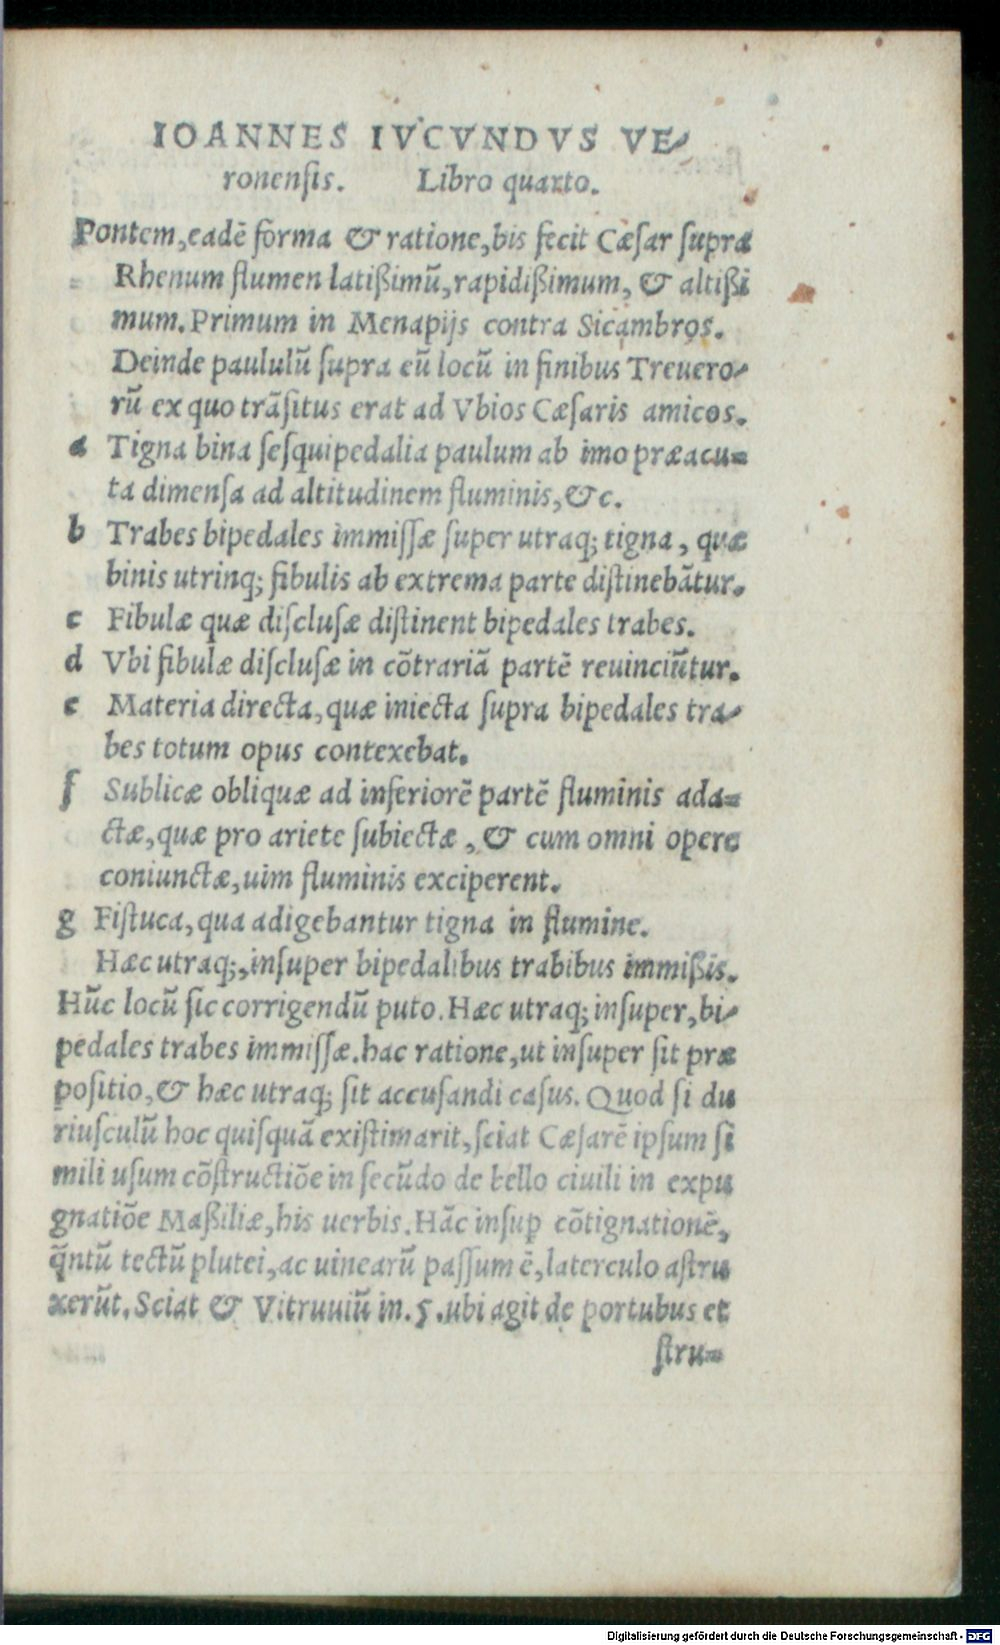 IOANNES IVCVNDVS VE-
ronenſis. Libro quarto.
Pontem, eadē forma & ratione, bis fecit Cæſar ſupra
Rhenum flumen latißimū, rapidißimum, & altißi
mum. Primum in Menapijs contra Sicambros.
Deinde paululū ſupra eū locū in finibus Treuero-
rū ex quo trāſitus erat ad Vbios Cæſaris amicos.
a Tigna bina ſeſquipedalia paulum ab imo præacu-
ta dimenſa ad altitudinem fluminis, &c.
b Trabes bipedales immiſſæ ſuper utraq; tigna, quæ
binis utrinq; fibulis ab extrema parte diſtinebātur.
c Fibulæ quæ diſcluſæ diſtinent bipedales trabes.
d Vbi fibulæ diſcluſæ in cōtrariā partē reuinciūtur.
e Materia directa, quæ iniecta ſupra bipedales tra-
bes totum opus contexebat.
f Sublicæ obliquæ ad inferiorē partē fluminis ada-
ctæ, quæ pro ariete ſubiectæ, & cum omni opere
coniunctæ, uim fluminis exciperent.
g Fiſtuca, qua adigebantur tigna in flumine.
Hæc utraq;, inſuper bipedalibus trabibus immißis.
Hūc locū ſic corrigendū puto. Hæc utraq; inſuper, bi-
pedales trabes immiſſæ. hac ratione, ut inſuper ſit præ
poſitio, & hæc utraq; ſit accuſandi caſus. Quod ſi du
riuſculū hoc quiſquā exiſtimarit, ſciat Cæſarē ipſum ſi
mili uſum cōſtructiōe in ſecūdo de bello ciuili in expu
gnatiōe Maßiliæ, his uerbis. Hāc inſuꝑ cōtignationē,
q̄ntū tectū plutei, ac uinearū paſſum ē, laterculo aſtru
xerūt. Sciat & Vitruuiū in. 5. ubi agit de portubus et
ſtru-
Digitalisierung gefördert durch die Deutsche Forschungsgemeinschaft - DFG